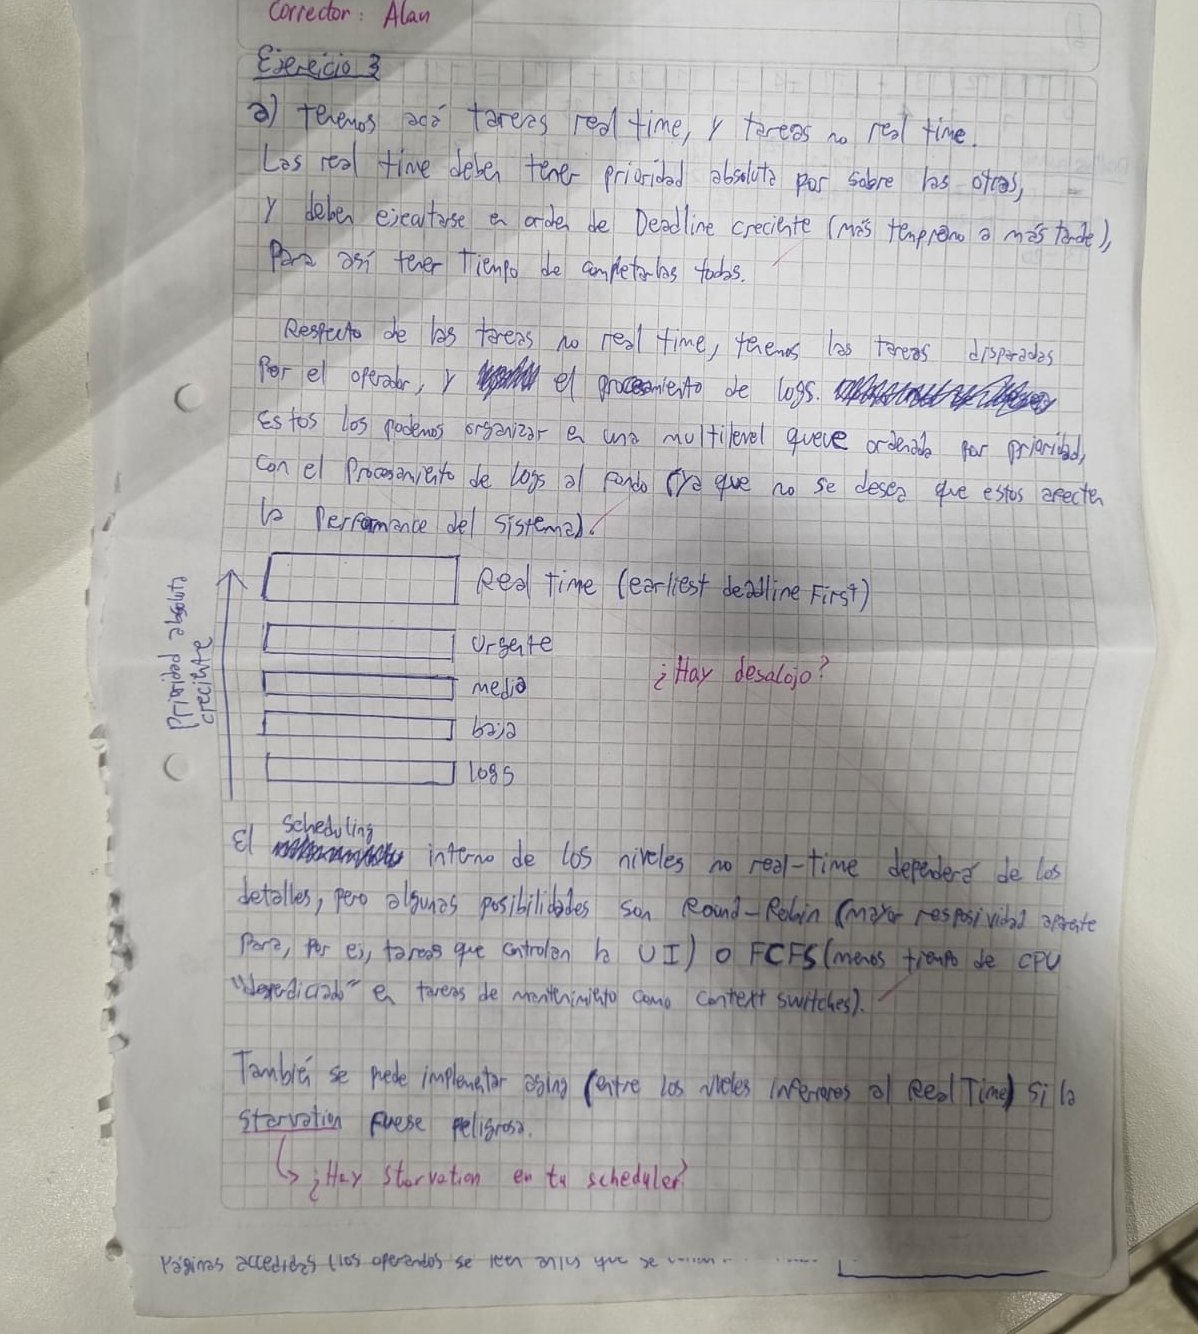 Corrector: Alan
Ejercicio 3
a) Tenemos acá tareas real time, y tareas no real time.
Las real time deben tener prioridad absoluta por sobre las otras,
y deben ejecutarse en orden de Deadline creciente (más temprano a más tarde),
Para así tener Tiempo de completarlas todas.
Respecto de las tareas no real time, tenemos las tareas disparadas
Por el operador, y el procesamiento de logs.
Estos los podemos organizar en una multilevel queue ordenada por prioridad,
con el Procesamiento de logs al fondo (ya que no se desea que estos afecten
la Performance del sistema).
Prioridad absoluta
creciente
Real Time (earliest deadline First)
Urgente
media
¿Hay desalojo?
baja
logs
scheduling
El interno de los niveles no real-time dependerá de los
detalles, pero algunas posibilidades son Round-Robin (mayor resposividad aparente
Para, por ej, tareas que controlan la UI) o FCFS (menos tiempo de CPU
"desperdiciado" en tareas de mantenimiento como context switches).
También se puede implementar aging (entre los niveles inferiores al Real Time) si la
starvation fuese peligrosa.
↳ ¿Hay starvation en tu scheduler?
Páginas accedidas (los operandos se leen antes que se